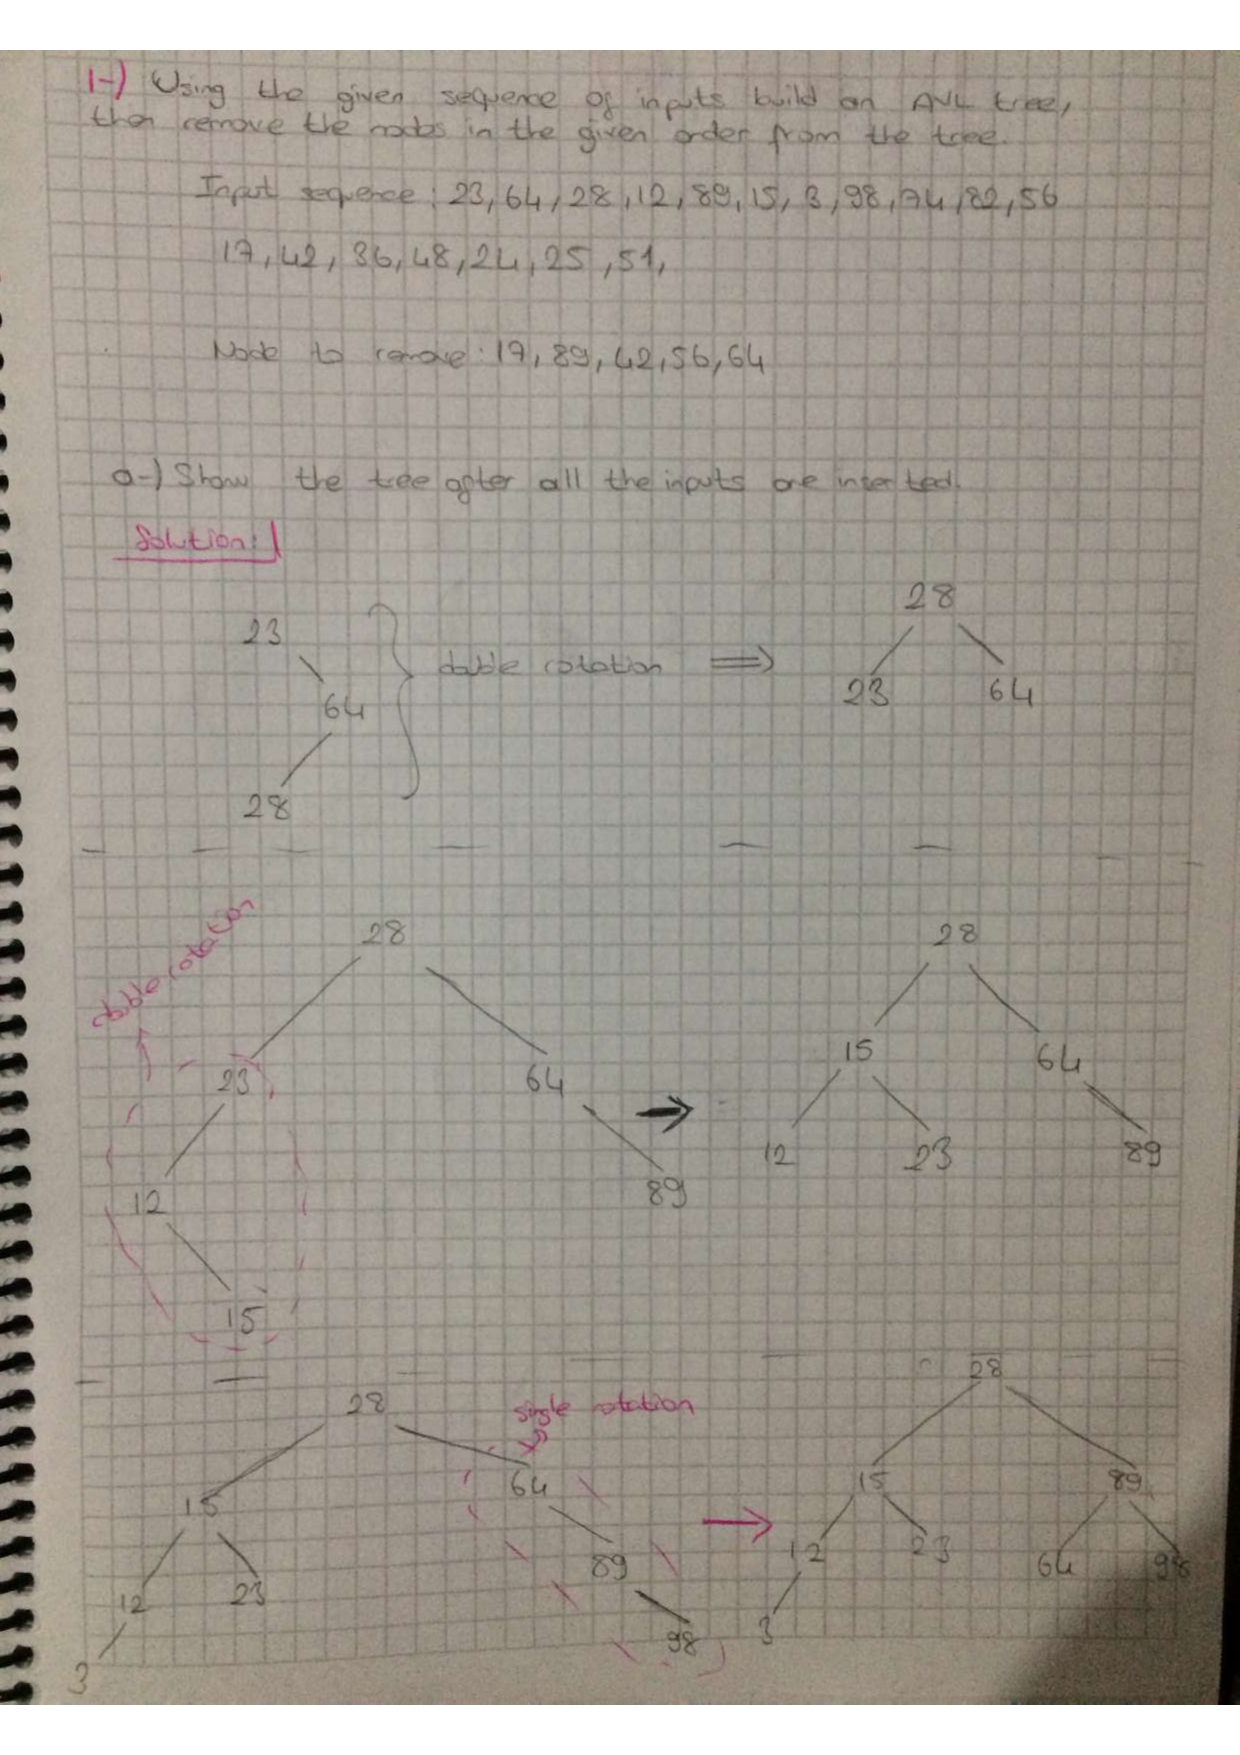 1-) Using the given sequence of inputs build an AVL tree,
then remove the nodes in the given order from the tree.
Input sequence: 23, 64, 28, 12, 89, 15, 3, 98, 74, 82, 56
17, 42, 36, 48, 24, 25, 51,
Node to remove: 17, 89, 42, 56, 64
a-) Show the tree after all the inputs are interted.
Solution:
23
64
28
double rotation ⇒
28
23 64
double rotation
28
23 64
12 89
15
→
28
15 64
12 23 89
28
single rotation
15 64
12 23 89
3 98
→
28
15 89
12 23 64 98
3